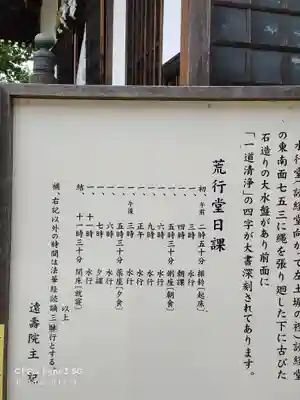 水行堂(読経堂
の東南面七五三に縄を張り廻した下に古びた
石造りの大水盤があり前面に
「一道清浄」の四字が大書深刻されてあります。
荒行堂日課
初、午前 二時五十分 振鈴〔起床〕、
一、三時 水行
一、四時 朝課
一、五時三十分 粥座〔朝食〕
一、六時 水行
一、九時 水行
一、正午 水行
一、午後 三時 水行
一、五時三十分 薬座〔夕食〕
一、六時 水行
一、七時 夕課
一、十一時 水行
結、十一時三十分 開床〔就寝〕
以上
補、右記以外の時間は法華経読誦三昧行とする
遠壽院主 記